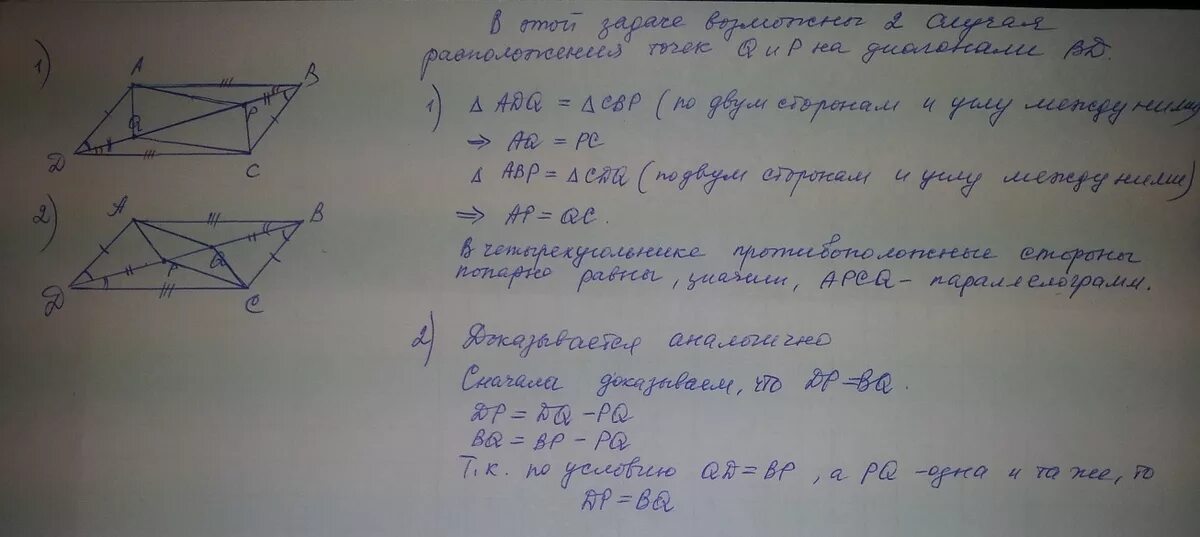 В этой задаче возможны 2 случая
расположения точек Q и P на диагонали BD.
1)
A
B
Q
P
D
C
1) △ ADQ = △CBP (по двум сторонам и углу между ними)
⇒ AQ = PC
△ ABP = △CDQ (по двум сторонам и углу между ними)
⇒ AP = QC.
В четырехугольнике противоположные стороны
попарно равны, значит, APCQ - параллелограмм.
2)
A
B
P
Q
D
C
2) Доказывается аналогично
Сначала доказываем, что DP = BQ.
DP = DQ - PQ
BQ = BP - PQ
Т.к. по условию QD = BP, а PQ - одна и та же, то
DP = BQ